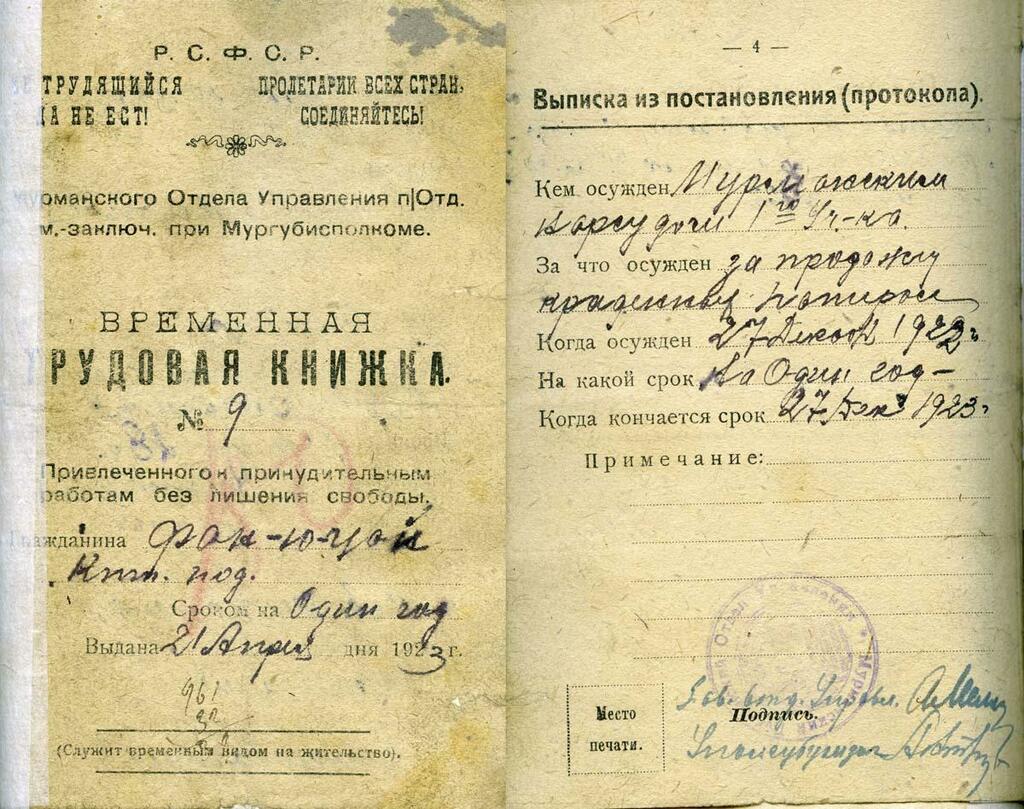 Р. С. Ф. С. Р.
ТРУДЯЩИЙСЯ
НЕ ЕСТ!
ПРОЛЕТАРИИ ВСЕХ СТРАН,
СОЕДИНЯЙТЕСЬ!
рманского Отдела Управления п|Отд.
м.-заключ. при Мургубисполкоме.
ВРЕМЕННАЯ
РУДОВАЯ КНИЖКА.
№ 9
Привлеченного к принудительным
работам без лишения свободы.
ажданина Фок-ю-чой
Кит. под.
Сроком на Один год
Выдана 21 Апреля дня 1923 г.
961
32
(Служит временным видом на жительство).
— 4 —
Выписка из постановления (протокола).
Кем осужден Мурманским
Нарсудом 1го Уч-ка.
За что осужден за продажу
краденных папирос
Когда осужден 27 Декаб 1922 г
На какой срок На Один год -
Когда кончается срок 27 Дек 1923 г
Примечание:
Место
печати.
Подпись.
Зав. отд. Управл.